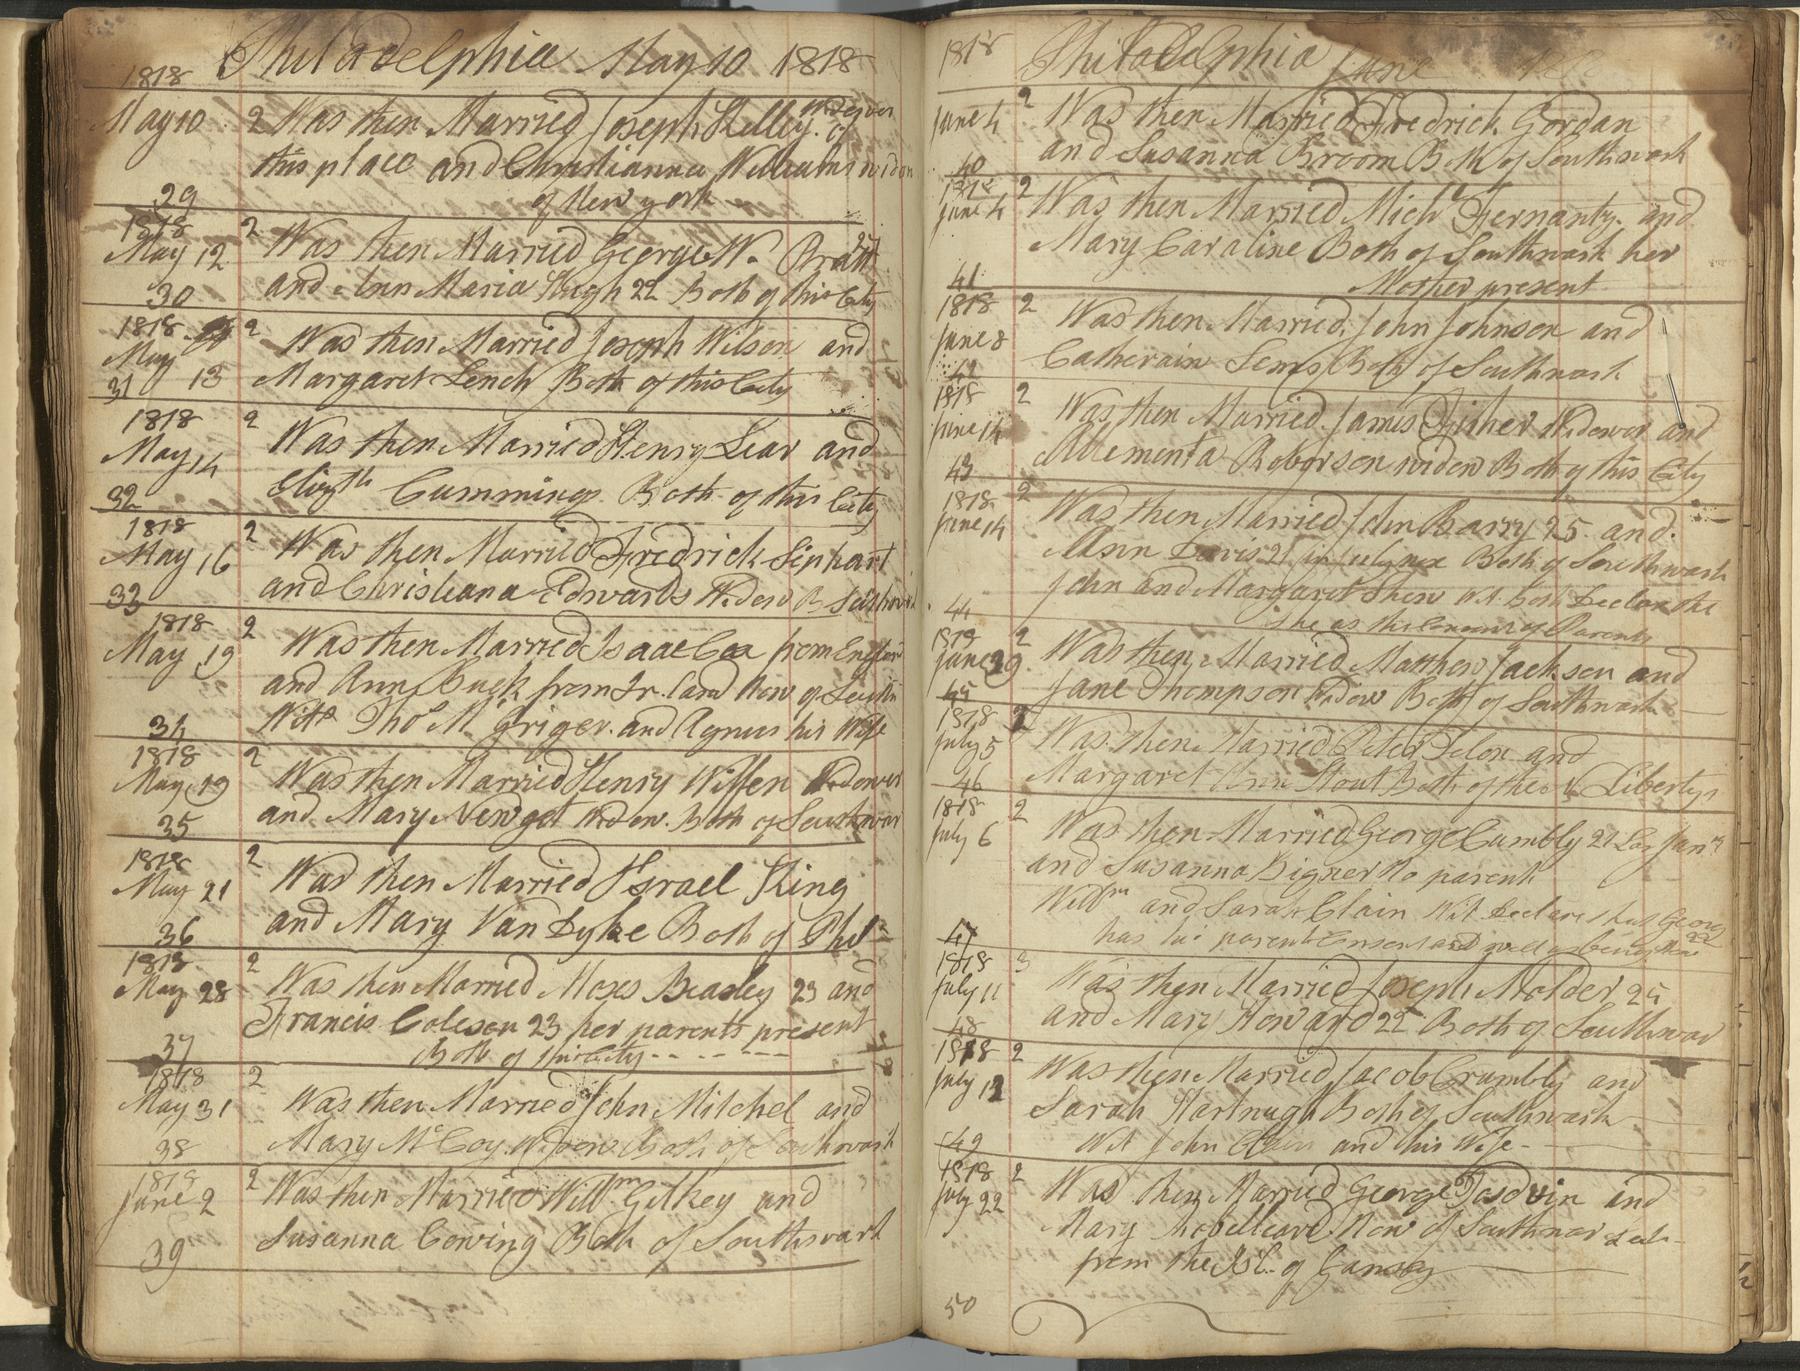 Philadelphia May 10 1818
1818
May 10 2 Was then Married Joseph Kelley Widower of
this place and Christianna Williams widow
29 of New york
1818
May 12 2 Was then Married George W. Bratt
and Ann Maria Hugh 22 Both of this City
30
1818 2 Was then Married Joseph Wilson and
May 13 Margaret Lench Both of this City
31
1818 2
May 14 Was then Married Henry Lear and
32 Elizth Cummings Both of this City
1818 2
May 16 Was then Married Fredrick Siphart
33 and Christeana Edwards Widow B Southwark
1818 2
May 19 Was then Married Isaac Cox from England
and Ann Buck from Ir. land Now of South
34 Witt Thos Mc Griger and Agnus his Wife
1818 2
May 19 Was then Married Henry Willen Widower
35 and Mary Newget Widow Both of Southwar
1818 2
May 21 Was then Married Israel King
36 and Mary Van Dyke Both of Phil
1818 2
May 28 Was then Married Moses Beasley 23 and
Francis Coleson 23 her parents present
37 Both of this City
1818 2
May 31 Was then Married John Mitchel and
38 Mary Mc Coy Widow Both of Southwark
1818 2
June 2 Was then Married Willm Gilkey and
39 Susanna Cowing Both of Southwark
1818 Philadelphia June
June 4 2 Was then Married Fredrick Gordan
40 and Susanna Broom Both of Southwark
1818 2
June 4 Was then Married Michl Fernanty and
Mary Caraline Both of Southwark her
41 Mother present
1818 2
June 8 Was then Married John Johnson and
42 Catherain Sems Both of Southwark
1818 2
June 14 Was then Married James Fisher Widower and
43 Roberson widow Both of this City
1818 2
June 14 Was then Married John Barry 25 and
Ann Davis 21 Both of Southwark
John and Margaret Shew Wit both Declar the
44 she as the Concent of Parents
1818 2
June 29 Was then Married Matthew Jackson and
45 Jane Thompson Widow Both of Southwark
1818 2
July 5 Was then Married Peter Felon and
46 Margaret Ann Stout Both of the N Libertys
1818 2
July 6 Was then Married George Cumbly 21 Las Jany
and Susanna Bigner No parent
Willm and Sarah Clain Wit Declare that Georg
47 has his parent Consent and
1818 3
July 11 Was then Married Joseph Molder 25
48 and Mary Howard 22 Both of Southwar
1818 2
July 12 Was then Married Jacob Crumbly and
Sarah Hartnugh Both of Southwark
49 Wit John and his Wife
1818 2
July 22 Was then Married George Dasdvin and
Mary Now of Southwar
from the Isl. of Garnsey
50